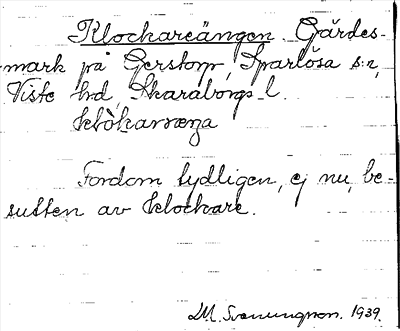 Klockareängen. Gärdes-
mark på Gerstorp, Sparlösa s:n,
Viste hd, Skaraborgs l.
klòkaræŋa
Fordom tydligen, ej nu, be-
sutten av klockare.
M. Svanungson. 1939.